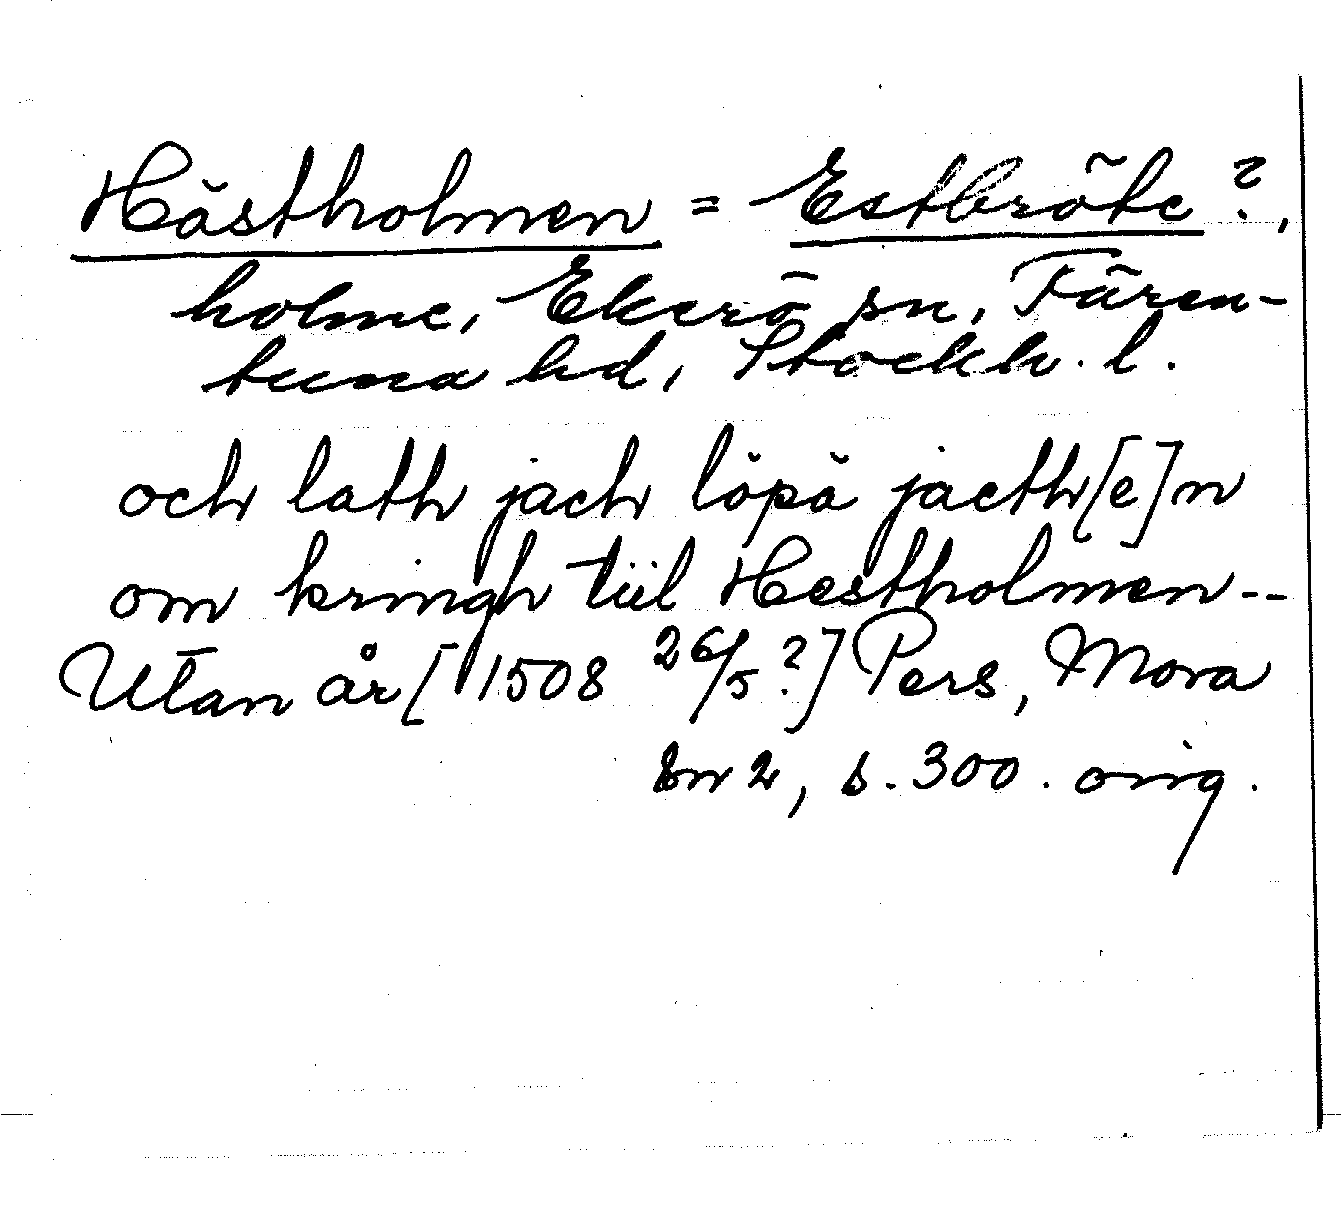 Hästholmen = Estbröte?,
holme, Ekerö sn, Fären-
tuna hd, Stockh. l.
och lath jach löpä jacth[e]n
om kringh tiil Hestholmen--
Utan år [1508 26/5?] Pers, Mora
sn 2, s. 300. orig.